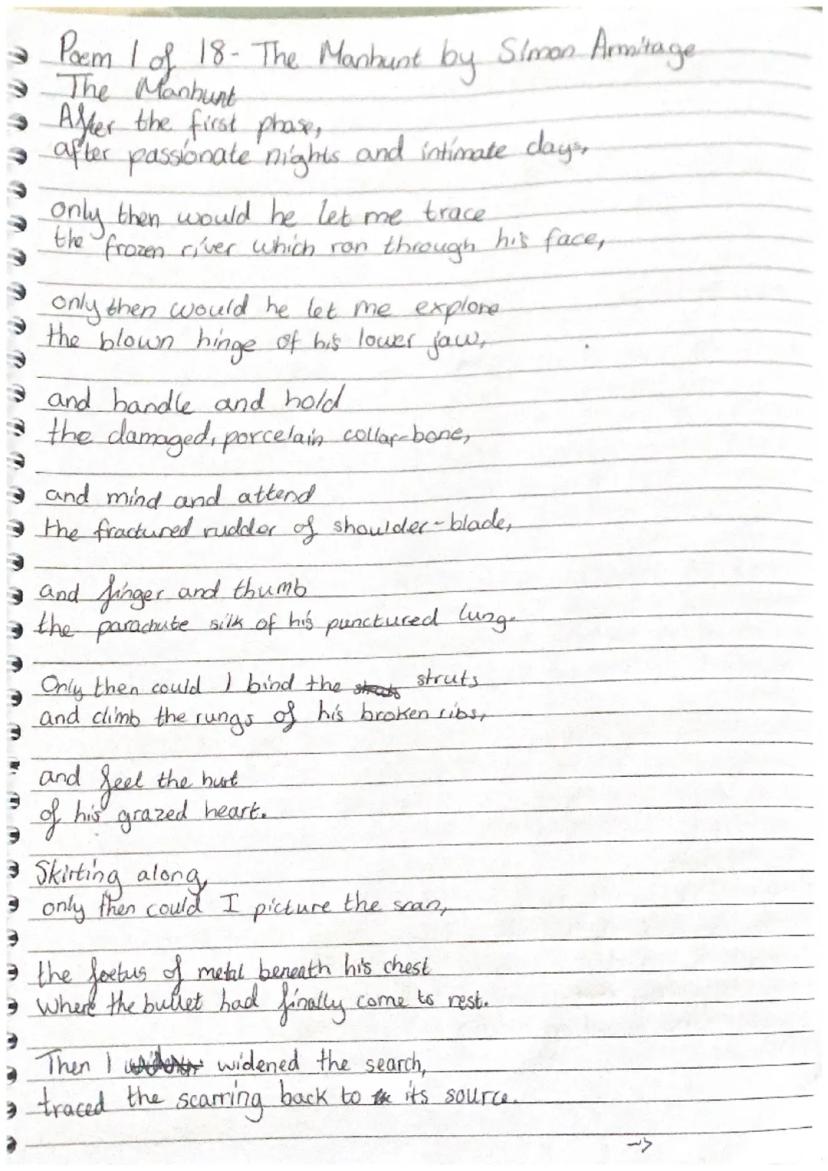 Poem 1 of 18 - The Manhunt by Simon Armitage
The Manhunt
After the first phase,
after passionate nights and intimate days,
only then would he let me trace
the frozen river which ran through his face,
only then would he let me explore
the blown hinge of his lower jaw,
and handle and hold
the damaged, porcelain collar-bone,
and mind and attend
the fractured rudder of shoulder-blade,
and finger and thumb
the parachute silk of his punctured lung.
Only then could I bind the struts
and climb the rungs of his broken ribs,
and feel the hurt
of his grazed heart.
Skirting along,
only then could I picture the scan,
the foetus of metal beneath his chest
where the bullet had finally come to rest.
Then I widened the search,
traced the scarring back to its source.
→